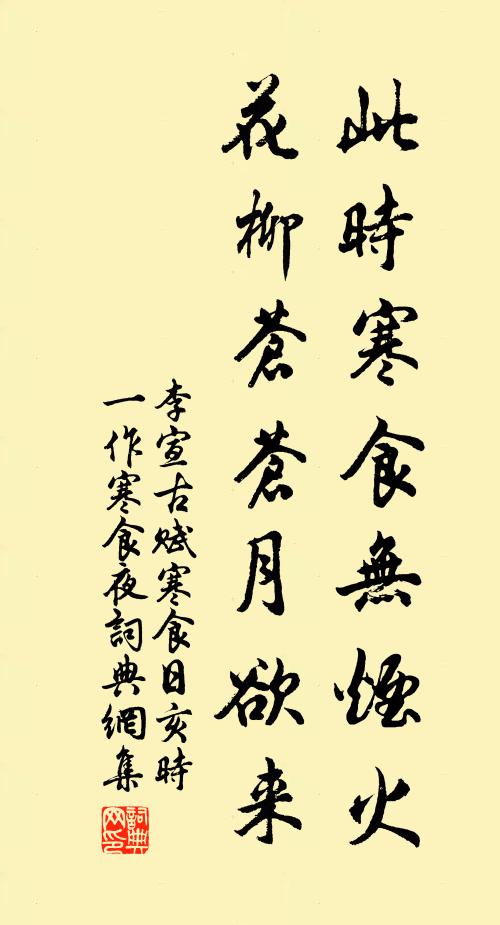 此時寒食無煙火
花柳蒼蒼月欲来
李宣古賦寒食日亥時
一作寒食夜詞典網集
詞典
网印